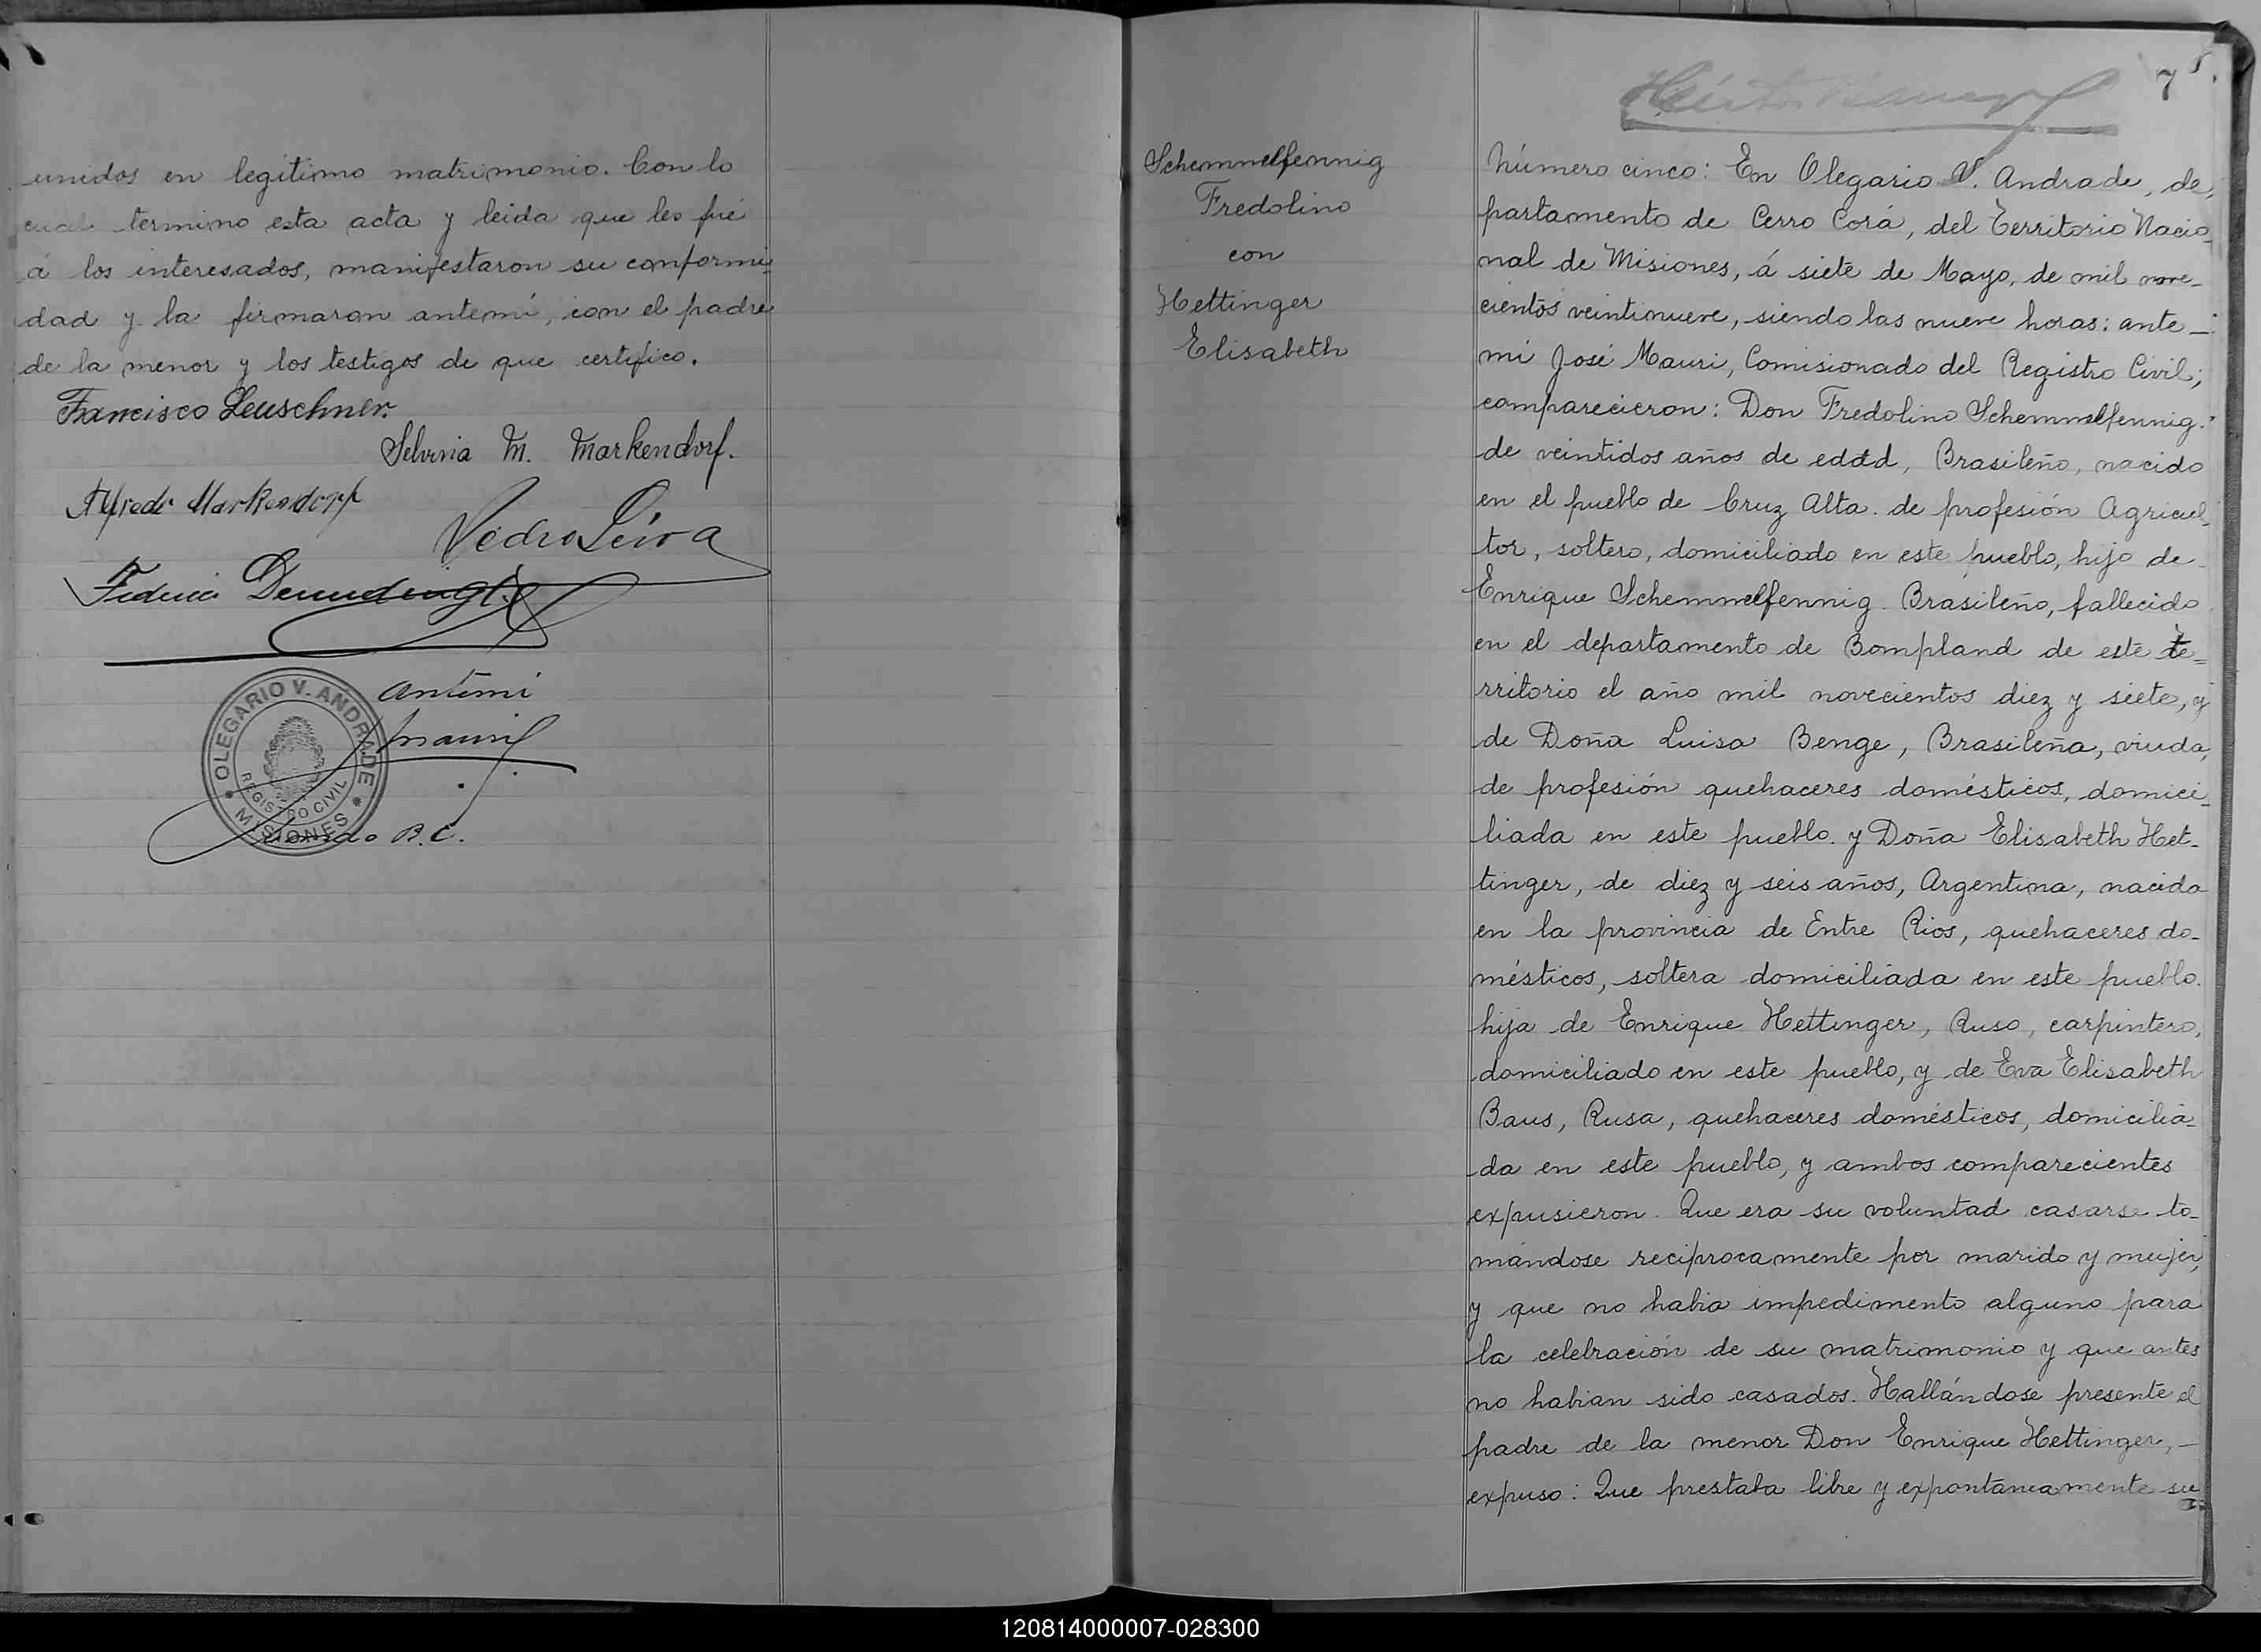 unidos en legítimo matrimonio. Con lo
cual termino esta acta y leida que les fué
á los interesados, manifestaron su conformi-
dad y la firmaron antemí, con el padre
de la menor y los testigos de que certifico.
Francisco Leuschner.
Selvina M. Markendorf.
Alfredo Markendorf
Pedro Leiva
Federico
antemi
Mauri
OLEGARIO V. ANDRADE
REGISTRO CIVIL
* MISIONES *
R.C.
7
Schemmelfennig
Fredolino
con
Hettinger
Elisabeth
Número cinco: En Olegario V. Andrade, de-
partamento de Cerro Corá, del Territorio Nacio-
nal de Misiones, á siete de Mayo, de mil nove-
cientos veintinueve, siendo las nueve horas: ante
mi José Mauri, Comisionado del Registro Civil;
comparecieron: Don Fredolino Schemmelfennig.
de veintidos años de edad, Brasileño, nacido
en el pueblo de Cruz Alta. de profesión Agricul-
tor, soltero, domiciliado en este pueblo, hijo de
Enrique Schemmelfennig. Brasileño, fallecido
en el departamento de Bompland de este te=
rritorio el año mil novecientos diez y siete, y
de Doña Luisa Benge, Brasileña, viuda,
de profesión quehaceres domésticos, domici-
liada en este pueblo. y Doña Elisabeth Het-
tinger, de diez y seis años, Argentina, nacida
en la provincia de Entre Rios, quehaceres do-
mésticos, soltera domiciliada en este pueblo.
hija de Enrique Hettinger, Ruso, carpintero,
domiciliado en este pueblo, y de Eva Elisabeth
Baus, Rusa, quehaceres domésticos, domicilia-
da en este pueblo, y ambos comparecientes
expusieron. Que era su voluntad casarse to-
mándose reciprocamente por marido y mujer,
y que no habia impedimento alguno para
la celebración de su matrimonio y que antes
no habian sido casados. Hallándose presente el
padre de la menor Don Enrique Hettinger,
expuso: Que prestaba libre y expontaneamente su
120814000007-028300